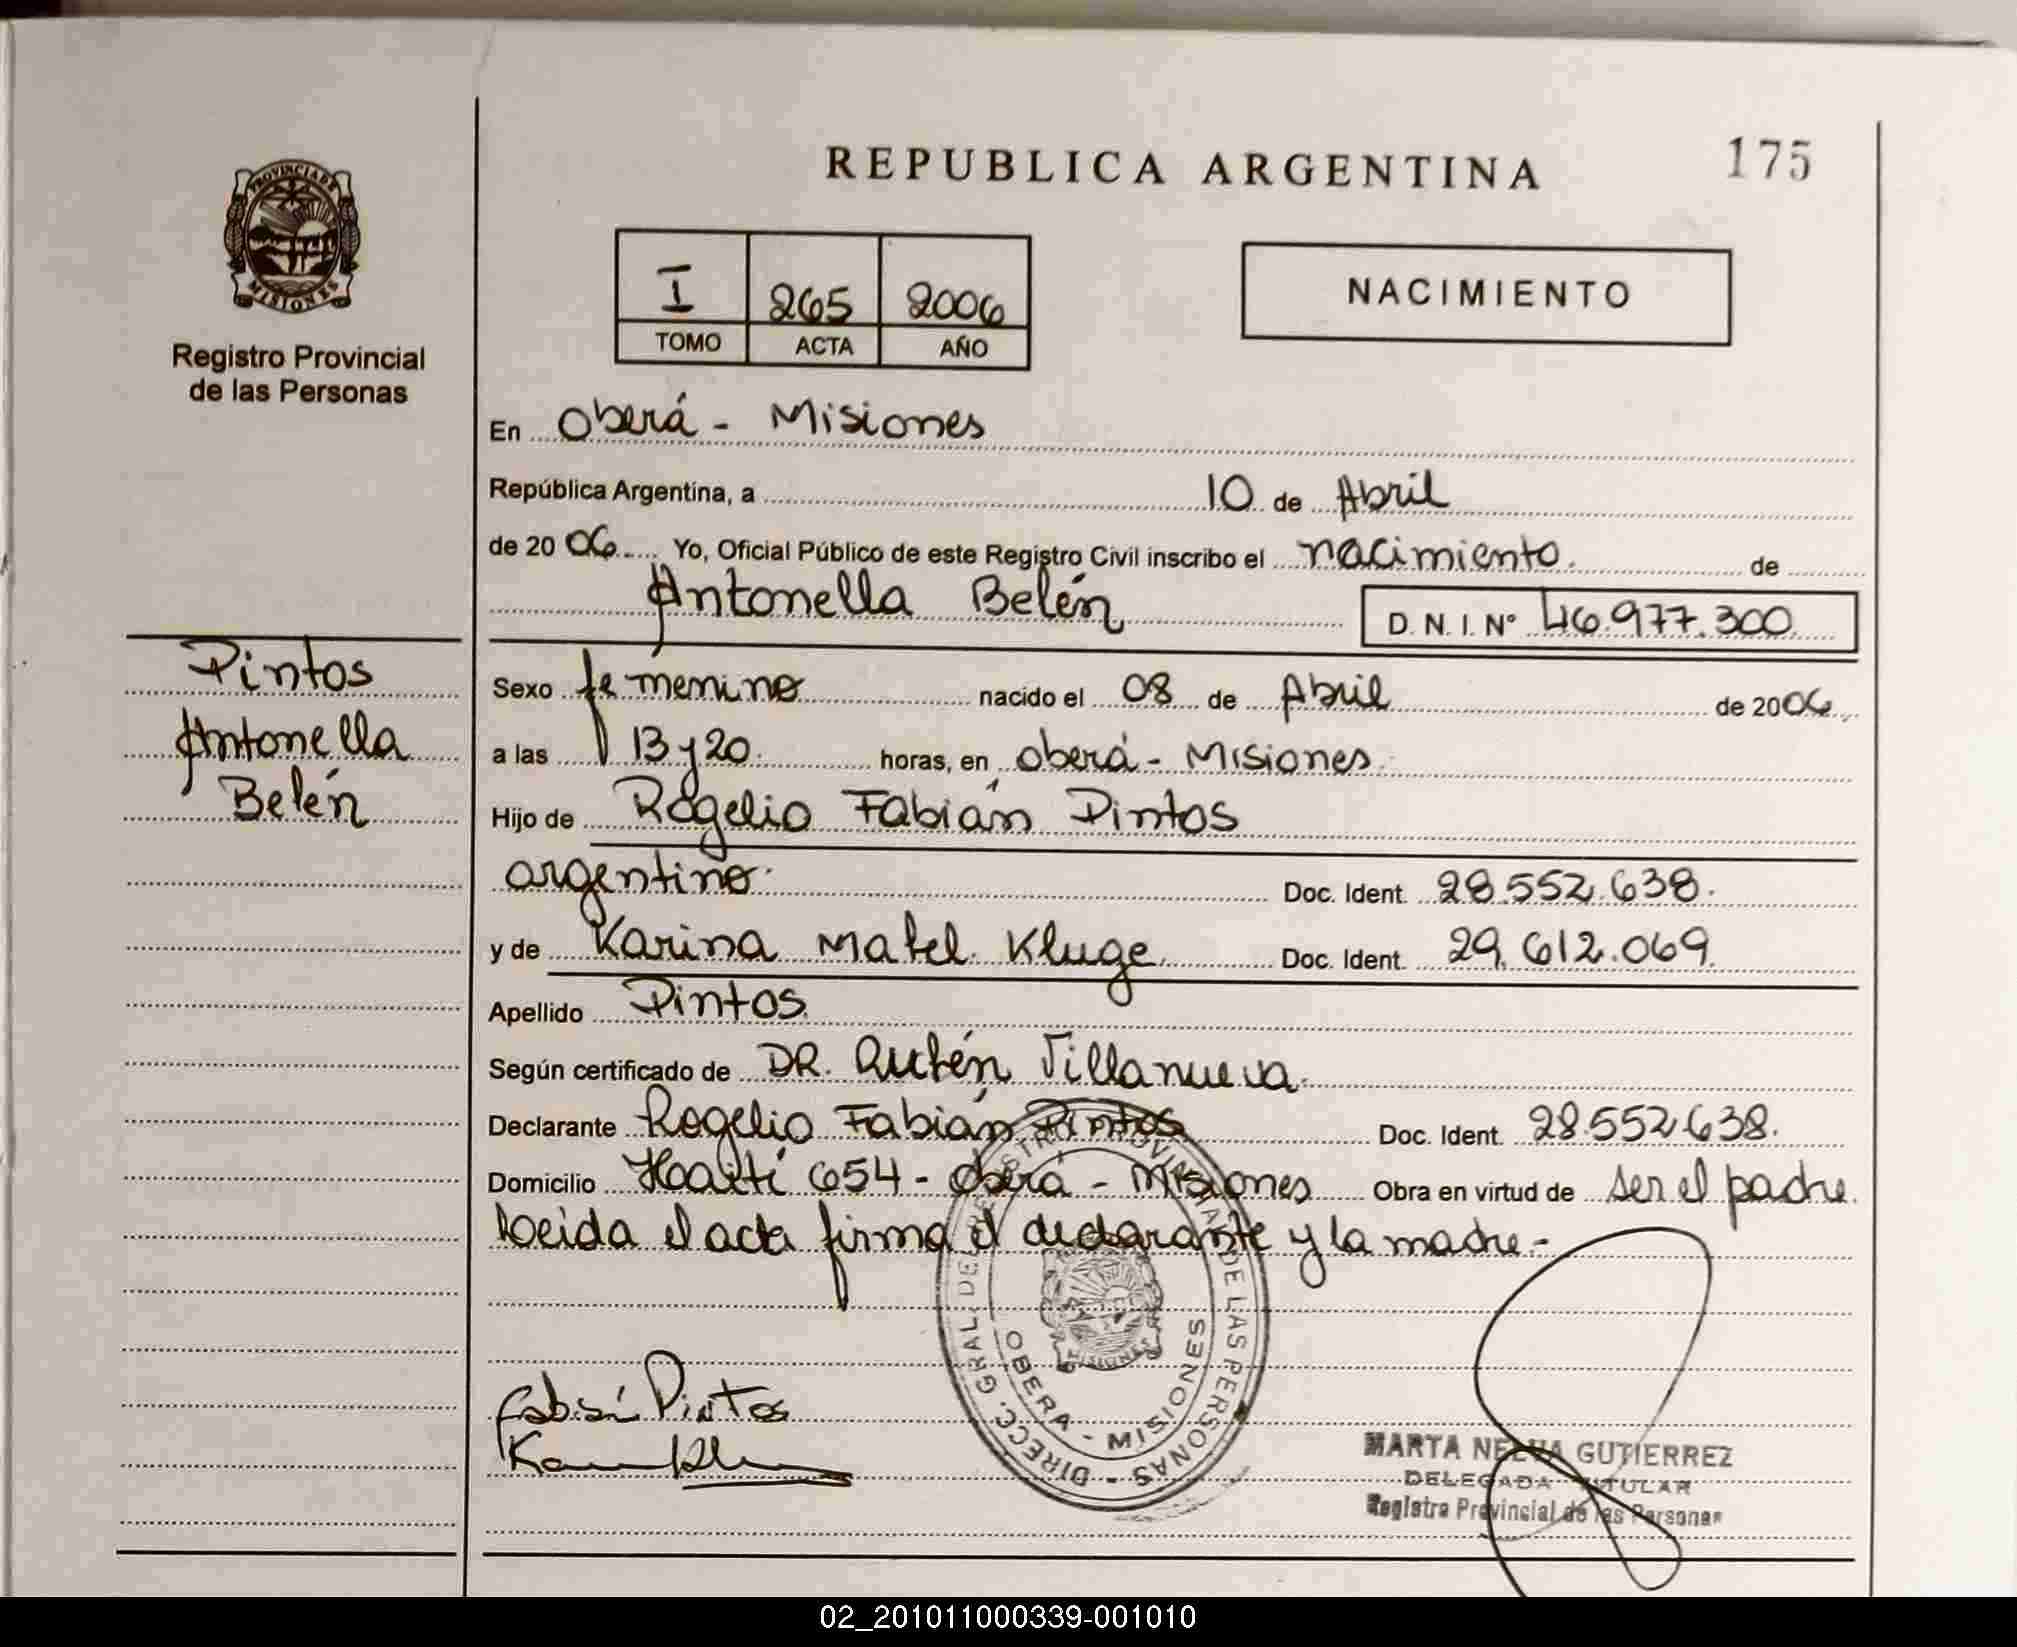 REPUBLICA ARGENTINA
175
PROVINCIA DE
MISIONES
Registro Provincial
de las Personas
I 265 2006
TOMO ACTA AÑO
NACIMIENTO
En Oberá - Misiones
República Argentina, a 10 de Abril
de 20 06 Yo, Oficial Público de este Registro Civil inscribo el nacimiento. de
Antonella Belén D. N. I. Nº 46.977.300
Pintos
Antonella
Belén
Sexo femenino nacido el 08 de Abril de 2006
a las 13 y 20. horas, en Oberá - Misiones
Hijo de Rogelio Fabián Pintos
argentino Doc. Ident. 28.552.638.
y de Karina Mabel Kluge Doc. Ident. 29.612.069
Apellido Pintos
Según certificado de DR. Rubén Villanueva.
Declarante Rogelio Fabián Pintos Doc. Ident. 28.552.638.
Domicilio Haití 654 - Oberá - Misiones Obra en virtud de ser el padre
Leida el acta firma el declarante y la madre.-
DIRECC. GRAL. DE REGISTRO PROVINCIAL DE LAS PERSONAS
OBERA - MISIONES
MISIONES
Fabián Pintos
MARTA NELVA GUTIERREZ
DELEGADA TITULAR
Registro Provincial de las Personas
02_201011000339-001010